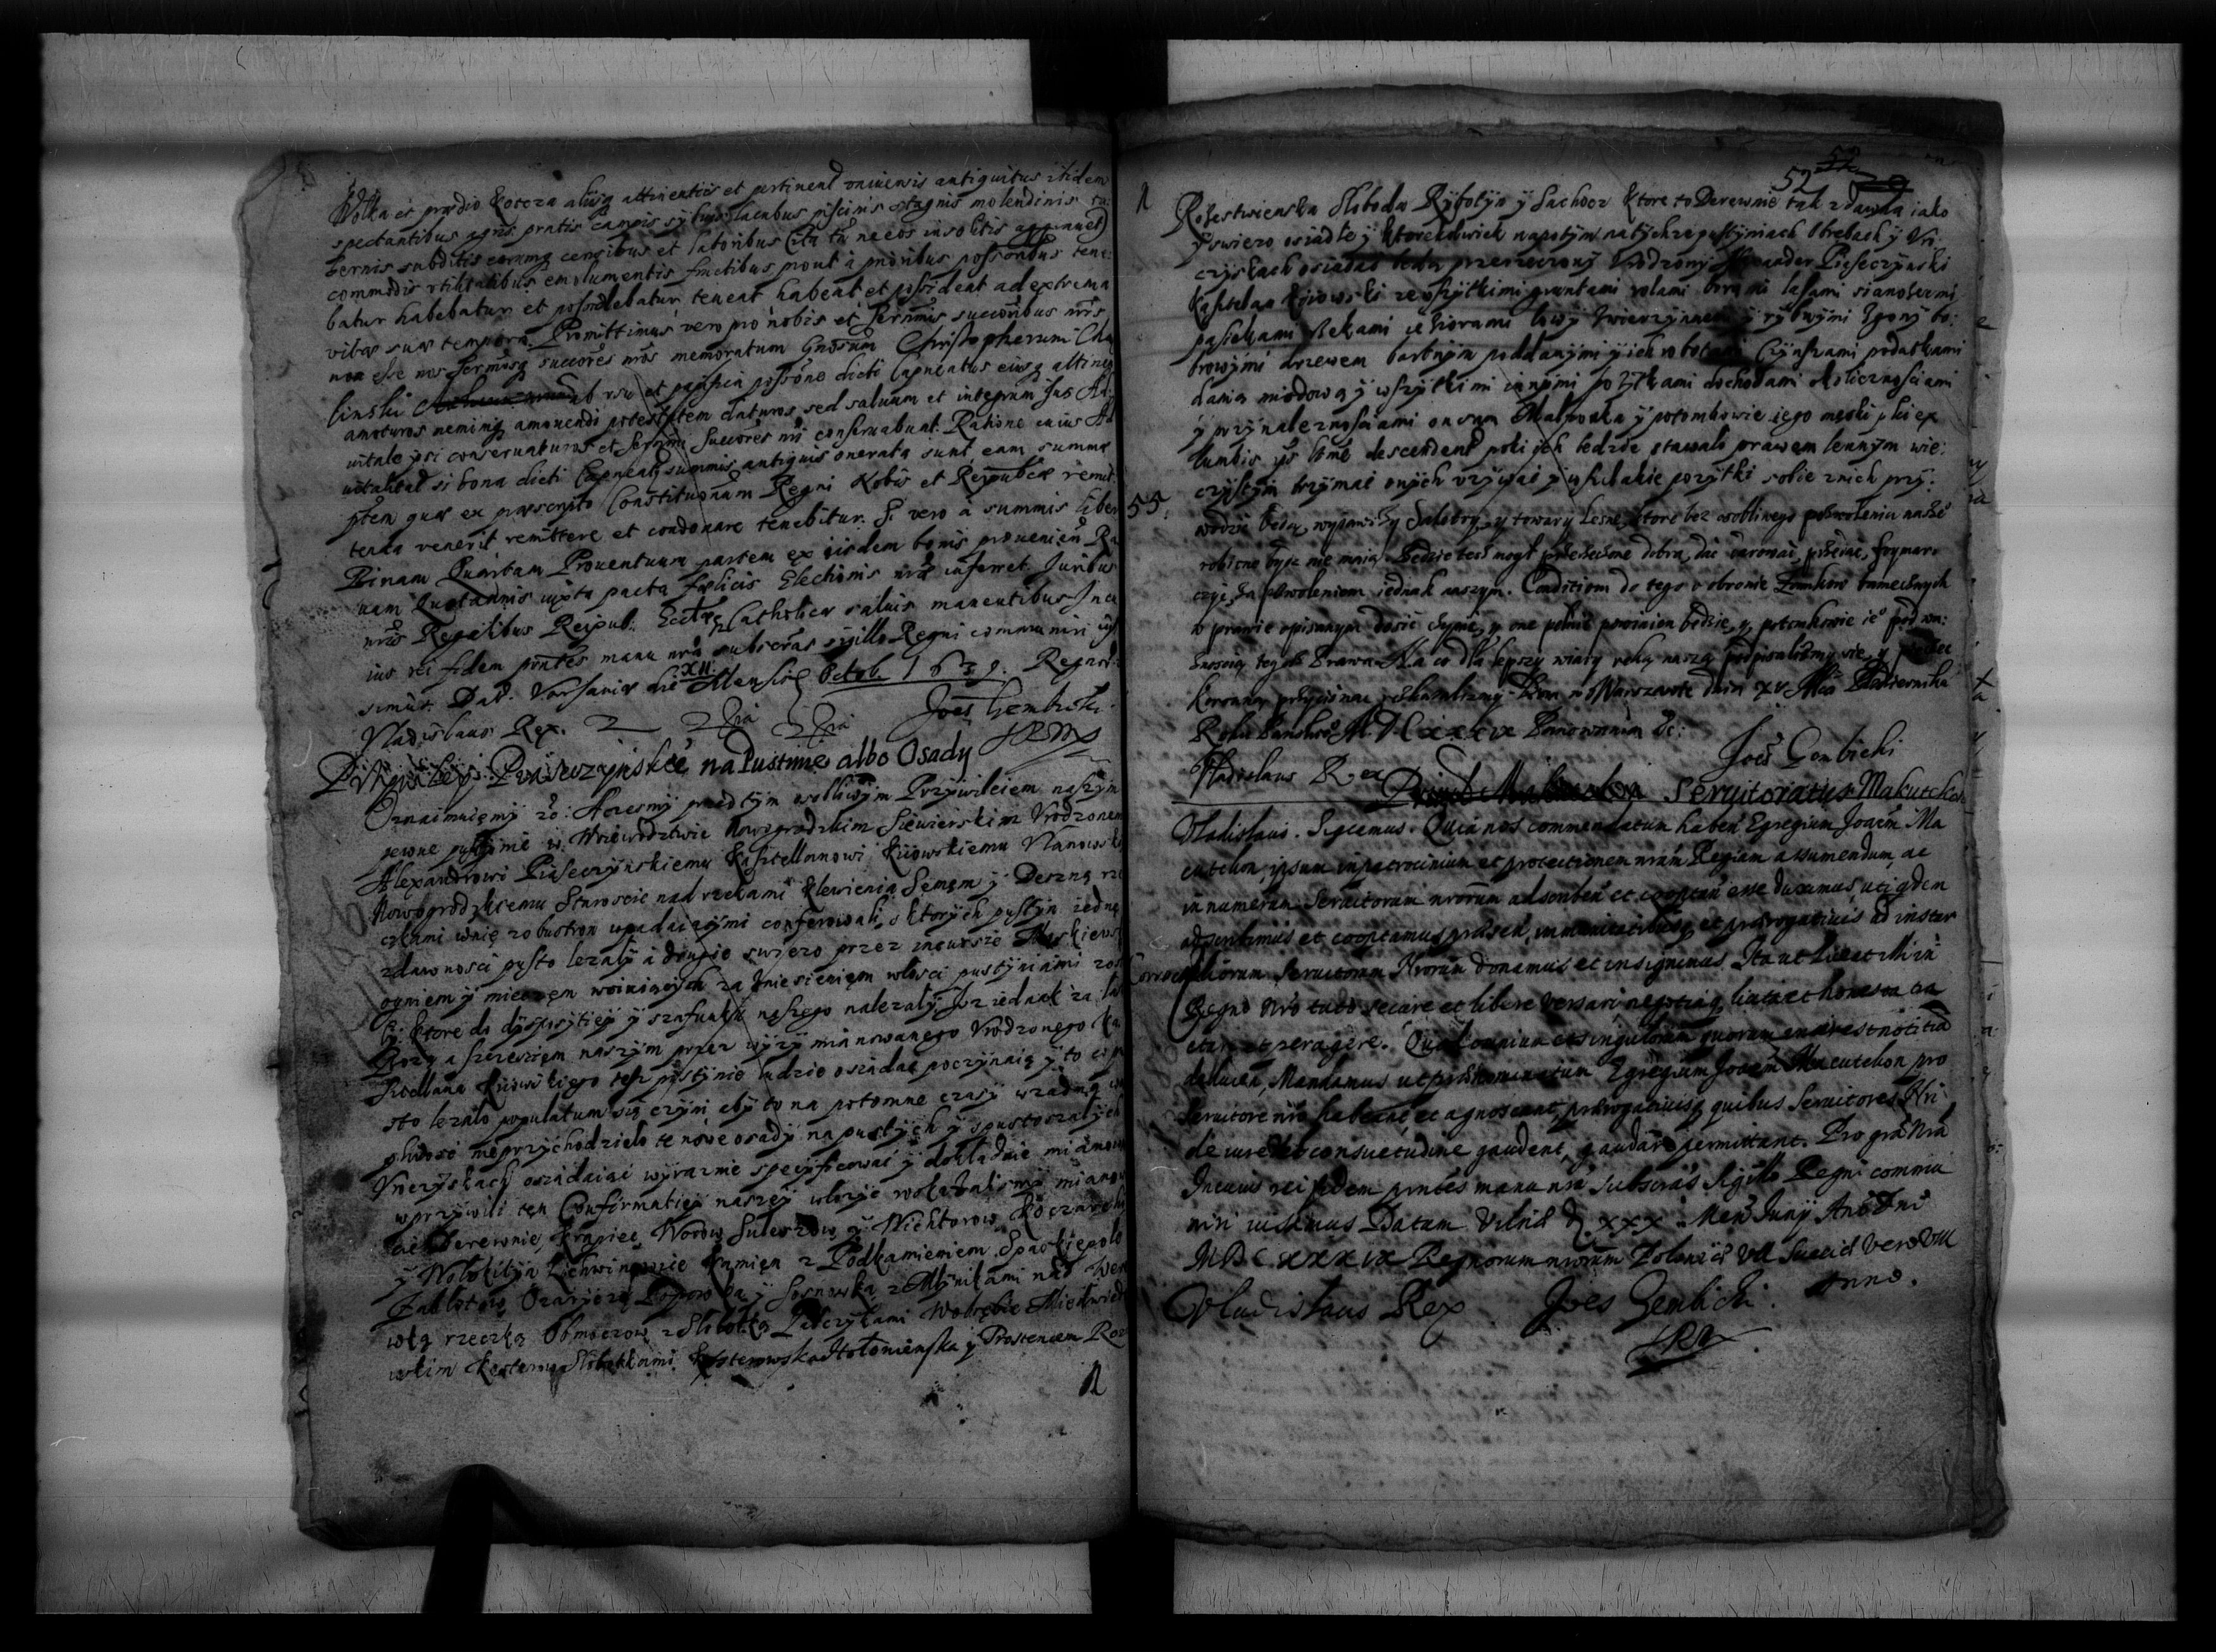 Wolka et prædio Kotcza aliisq attinentiis et pertinent universis antiquitus itidem
spectantibus agris pratis campis sylvis lacubus piscinis stagnis molendinis ta
bernis subditis eorumq censibus et laboribus (ita tn ne eos insolitis aggravet)
commodis utilitatibus emolumentis fructibus prout à prioribus possoribus tene
batur habebatur et possidebatur, teneat habeat et possideat ad extrema
vitæ suæ tempora. Promittimus vero pro nobis et Sermis succoribus nris
non esse nos Sermosq succores nros memoratum Gnosum Christopherum Cha
linski ab usu et pacifica possone dicti Capneatus eiusq attinen
amoturos neminiq amovendi potestatem daturos, sed salvum et integrum Jus Ad
vitale ipsi conservaturos et Sermi Succores nri conservabunt. Ratione cuius Ad
vitalitat si bona dicti summis antiquis onerata sunt, eam summæ
ptem quæ ex præscripto Constitutionum Regni Nobis et Reipublcæ remit
tenda venerit, remittere et condonare tenebitur. Si vero à summis liber
Quartam Proventuum partem ex iisdem bonis provenien
nam Quotannis iuxta pacta fælicis Electionis nræ inferret. Juribus
nris Regalibus Reipub: Ecclæq Catholicæ salvis manentibus. In cu
ius rei fidem pntes manu nra subscras sigillo Regni communiri ius
simus. Dat. Varsaviæ die XII Mensis Octob. 1639. Regnor:
Vladislaus Rex. Joes Gembicki
Przywiley Piaseczynskie na Pustinie albo Osady
Oznaimuięmy &c: Acześmy przedtym osobliwym Przywileiem naszym
pewne pustynie w Woiewodztwie Nowogrodzkim Siewierskim Urodzonem
Alexandrowi Piaseczynskiemu Kasztellanowi Kiiowskiemu Ulanowski
Nowogrodzkiemu Staroscie nad rzekami Klewienią Semęm y Desną rze
czkami wnię zobustron wpadaiącymi conferowali, z ktorych pustyn iedne
zdawnosci pusto leżały a drugie swiezo przez incursie Moskiews
ogniem y mieczęm woiuiących za zniesienięm włosci pustyniami zos
ły: ktore do dyspozytiey y szafunku naszego należały. Isz iednak za łas
Bozą a szczescięm naszym przez wyzy mianowanego Urodzonego Ka
sztellana Kiiowskiego tesz pustynie ludzie osiadac poczynaią y to co pu
sto leżało populatum się czyni, eby to na potomne czasy wzadną w
phosć nieprzychodzieło te nowe osady na pustych y spustoszałych
Uroczyskach osiadaiąć wyraznie specyficować y dokładnie mianow
wprzywili ten Confirmatiey naszey włożyc roskazalismy mianow
cie Derewnie, Krapiec, Worow, Suleszow, y Wichtorow, Koczarki
y Wolokityn Lichwinowicze Kamięn z Podkamieniem, Spaskiepole
Zabłotow, Ozarycze Popowka y Sosnowka z Młynikami nad Kle
wką rzeczką Obmoczow z Slobotką Pieczykami Wobrębie Miedwied
wskim Kosterow Slobotkami. Kosterowska Itolomienska y Prostencem Roz
52
Rożestwienska Sloboda Rybotyn y Sachocz ktore to Derewnie tak zdawna iako
y swiezo osiadłe y ktorekolwiek napotym natychze pustyniach Obrebach y Uro
czyskach osiadać beda przerzeczony Urodzony Alexander Piaseczynski
Kasztelan Kiiowski ze wszytkimi gruntami rolami borami lasami sianożęmi,
pasiekami rzekami iezioramì łowy zwierzynnemi y rybnymi Zgony bo
browymi drzewem bartnym poddanymi y ich robotami Czynszami podatkami
danią miodową y wszytkimi innymi pożytkami dochodami okolicznosciami
y przynależnosciami on sam Małzonka y potomkowie iego męski płci ex
lumbis ipsius ltme descendent poki ich tedzie stawało prawem lennym wie
czystym trzymać onych używać y wszelakie pozytki sobie znich przy
55.
wodzić będą, wyiąwszy Saletry, y towary Lesne, ktore bez osobliwego pozwolenia nasze
robione byc nie maią. Bedzie tesz mogł przerzeczone dobra, dać darować, przedać, frymar
czyć, za pozwoleniem iednak naszym. Conditiom do tego o obronie Zamkow tameczných
w prawie opisanym dosić czynić, y one pełnić powinien bedzie, y potomkowie ie pod wa:
żnoscią tegoż Prawa. Na co dla lepszy wiary ręką naszą podpisalismy się, y pieczęc
Koronną przycisnąc roskazalismy. Dan w Warszawie dnia XV Mca Pazdziernika
Roku Panskie MDCXXXIX Panowania &c:
Vladislaus Rex Joes Gembicki
Servitoriatus Makutchon
Vladislaus. Sigcamus. Quia nos commendatum haben Egregium Joaem Ma
cutchon, ipsum in patrocinium et protectionem nram Regiam assumendum, ac
in numerum Servitorum nrorum adscriben et cooptan esse duximus, uti qdem
adscribimus et cooptamus prnsen, immunitatibusq et prærogativis ad instar
aliorum Servitorum Nrorum donamus et insignimus. Ita ut liceat illi in
Regno Nro tuto secure et libere versari, negotiaq licita et honesta tra
ctare et peragere. Quod omnium et singulorum quorum interest notitiæ
deducen, Mandamus ut prænominatum Egregium Joaem Macutchon pro
Servitore nro habeant, et agnoscant, prærogativisq quibus Servitores Nri
de iure et consuetudine gaudent, gaudere permittant. Pro gra Nra
In cuius rei fidem pntes manu nra subscras Sigillo Regni commu
niri iussimus Datum Vilnæ d. XXX Mens Juny Ano Dni
MDCXXXIX Regnorum nrorum Poloniæ VII Sueciæ vero VIII
Anno.
Vladislaus Rex Joes Gembicki.